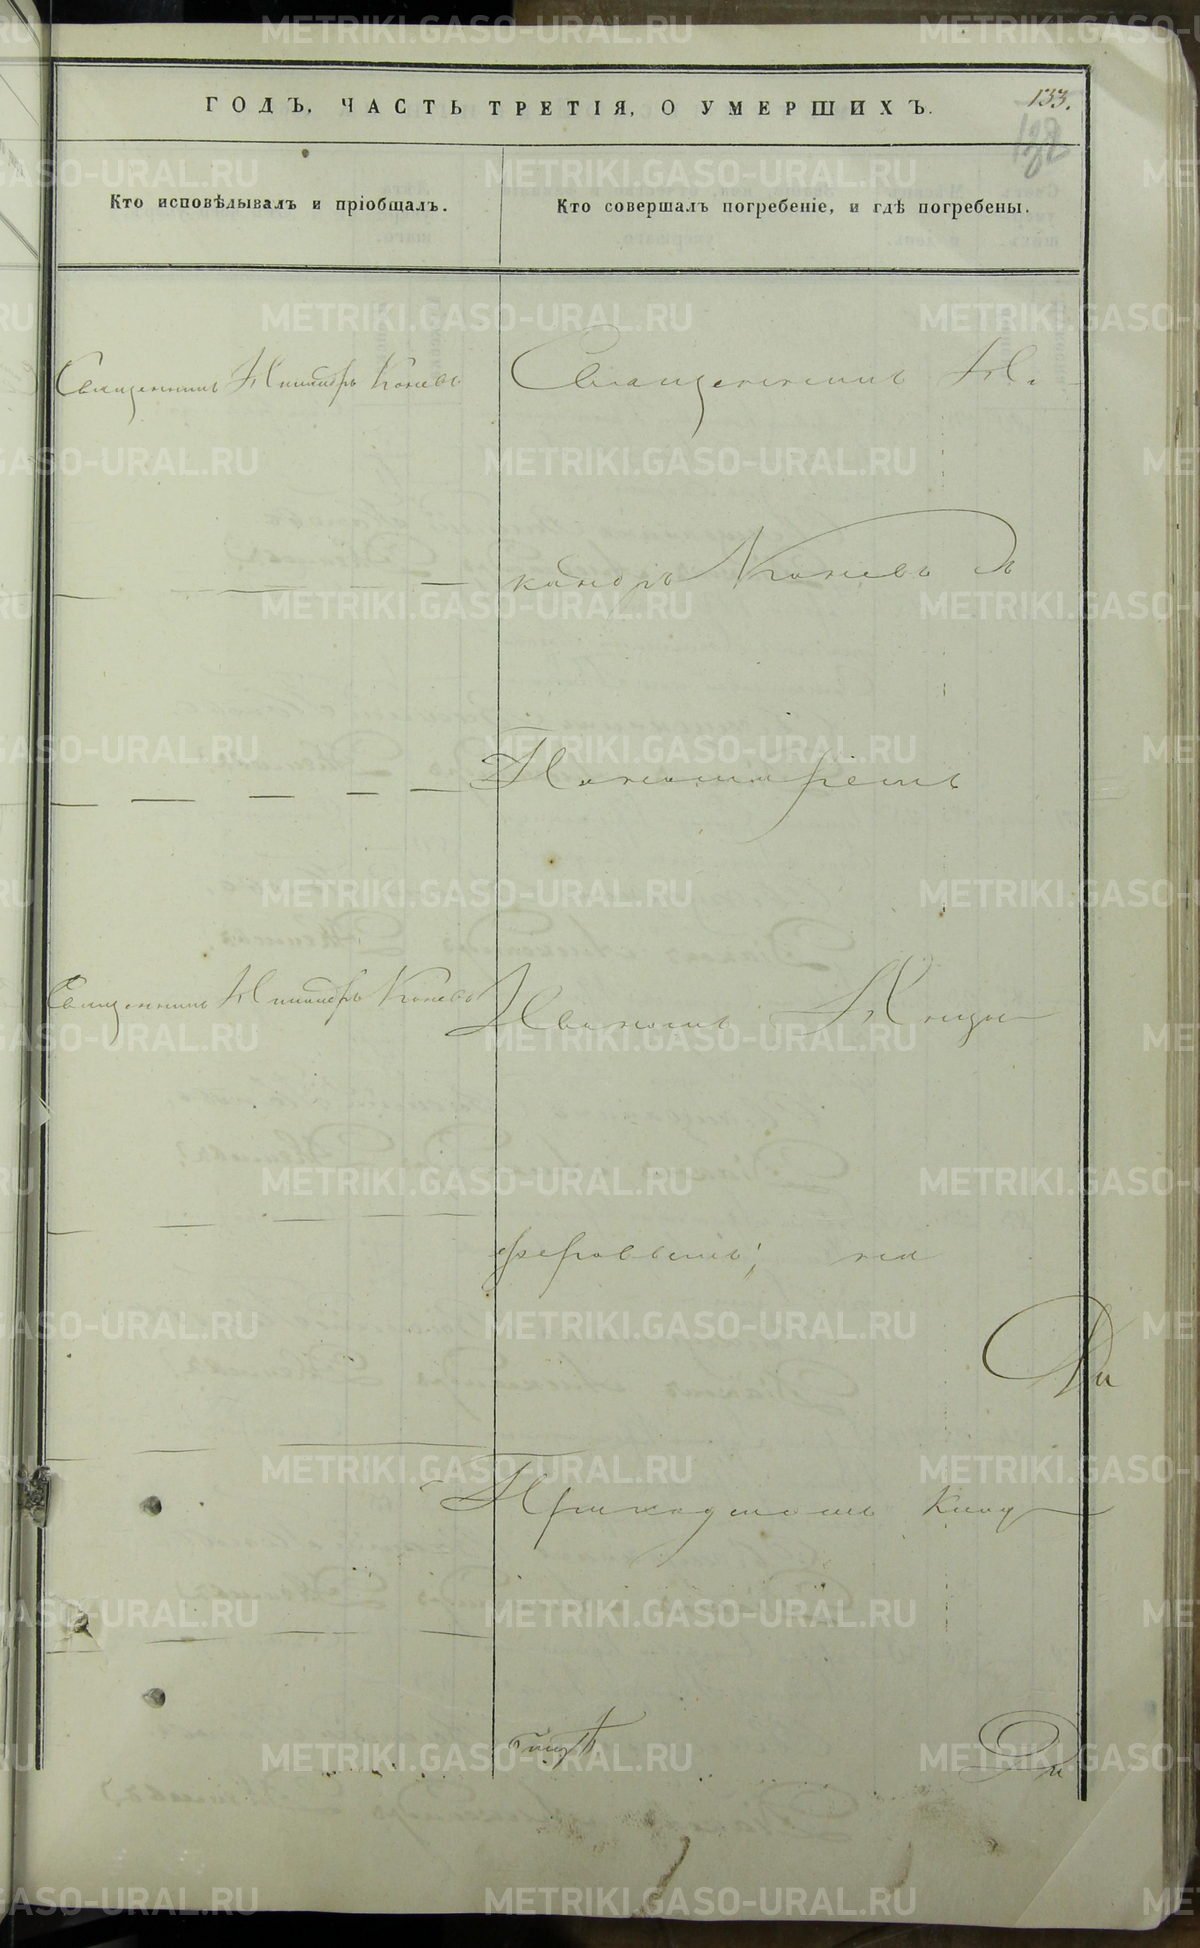 ГОДЪ, ЧАСТЬ ТРЕТІЯ, О УМЕРШИХЪ.
133.
Кто исповѣдывалъ и пріобщалъ.
Кто совершалъ погребеніе, и гдѣ погребены.
Священникъ Никаноръ Коневъ
Священникъ Ни-
каноръ Коневъ съ
Пономаремъ
Священникъ Никаноръ Коневъ
Иваномъ Кници-
феровымъ; на
Приходскомъ клад-
бищѣ
METRIKI.GASO-URAL.RU